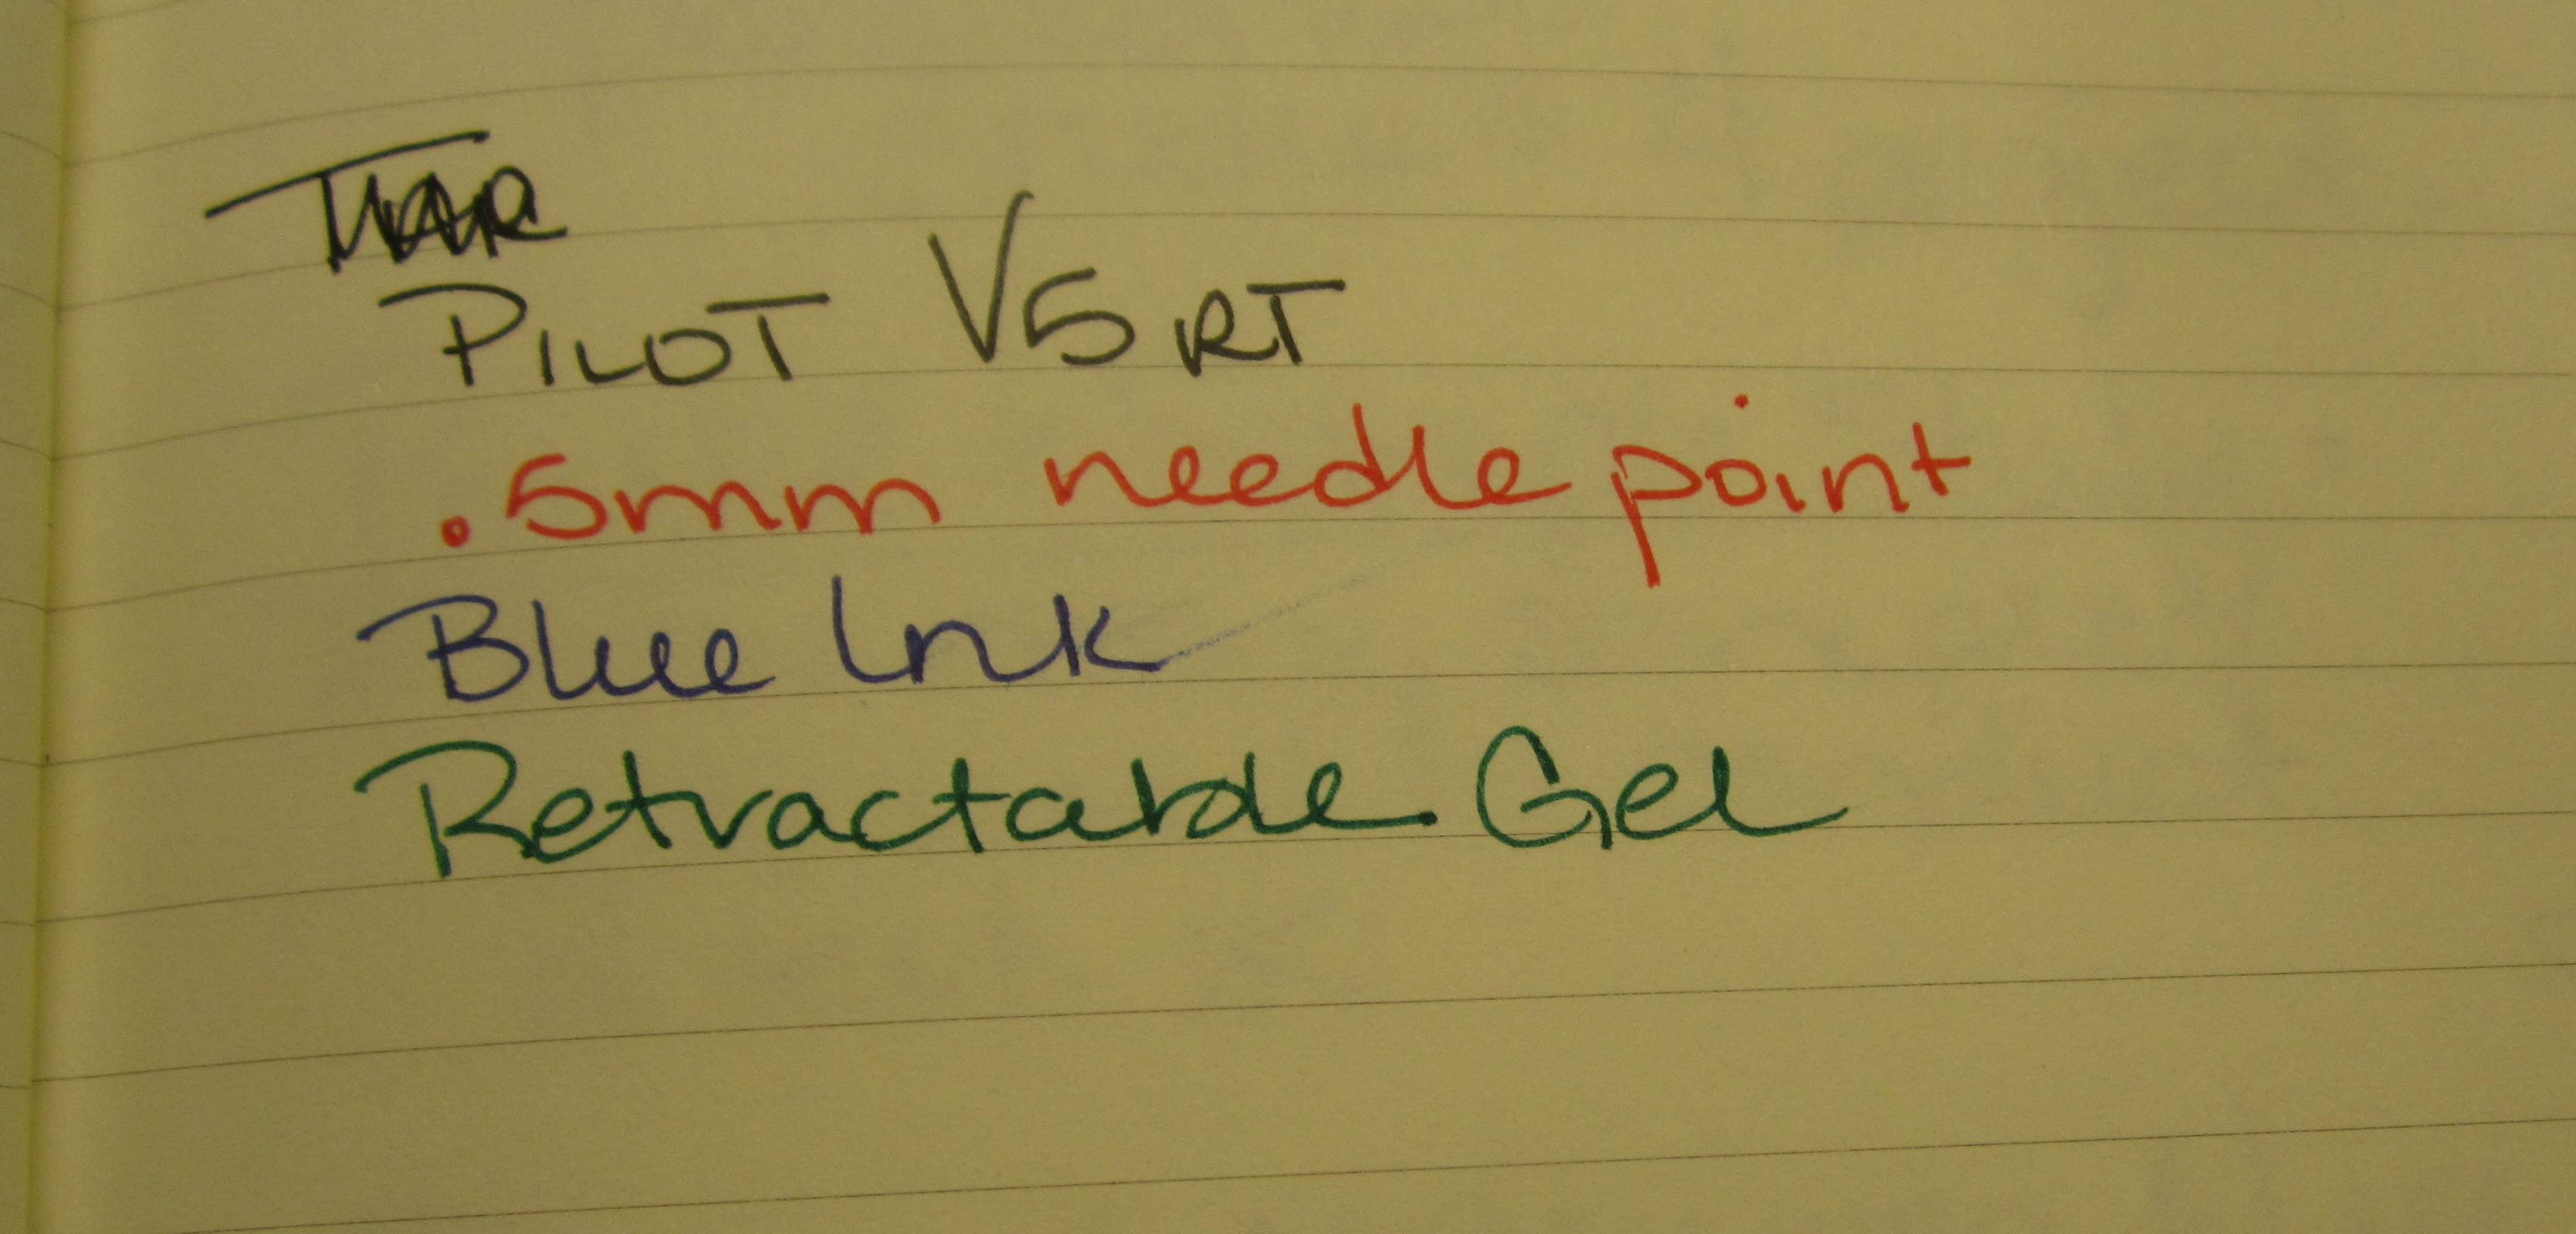 PILOT V5 RT
.5mm needle point
Blue Ink
Retractable Gel